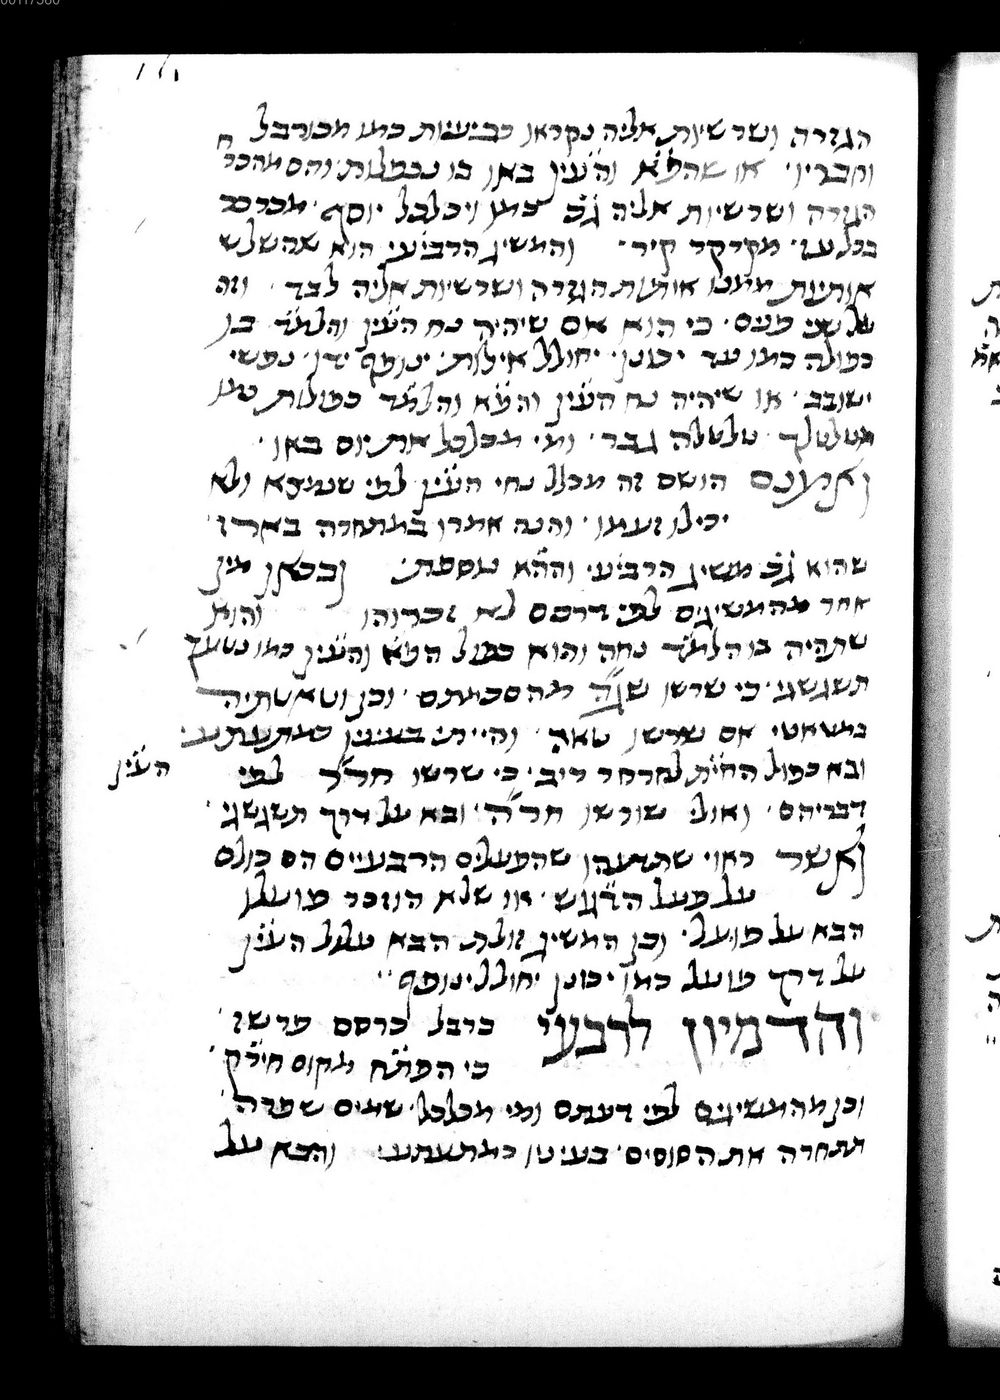 הגזרה ושרשיות אליה נקראו רביעיות כמו מכורבל
וחבריו׳ או שהפ״א והעי״ן באו בו נכפלות והם מהככר
הגזרה ושרשיות אליה ג״כ כמו ויכלכל יוסף׳ מכרכר
בכל עז׳ מקרקר קיר׳ והמשיג הרביעי הוא שהשלש
אותיות ממנו אותיות הגזרה ושרשיות אליה לבד׳ וזה
על שני פנים׳ כי הוא אם שיהיה נח העי״ן והלמ״ד בו
כפולה כמו עד יכונן׳ יחולל אילות׳ ינופף ידו׳ נפשי
ישובב׳ או שיהיה נח העי״ן והפ״א והלמ״ד כפולות כמו
מטלטלך טלטלה גבר׳ ומי מכלכל את יום באו׳
ואמנם הושם זה מכלל נחי העי״ן לפי שנמצא ולא
יכילו זעמו׳ והנה אמרו במתחרה בארז׳
שהוא ג״כ משיג הרביעי והה״א נוספת׳ ובכאן מין
אחד מהמשיגים לפי דרכם לא זכרוהו והוא
שתהיה בו הלמ״ד נחה והוא כפול הפ״א והעי״ן כמו נטעך
תשגשגי׳ כי שרשו שג״ה מהסכמתם׳ וכן וטאטתיה
במטאטי אם שרשו טאה׳ והיית בעיניו כמתעתע׳
ובא כפול החי״ת לחרחר ריב׳ כי שרשו חר״ר לפי
העי״ן
דבריהם׳ ואולי שורשו חר״ה׳ ובא על דרך תשגשגי׳
ואשר ראוי שתדעהו שהפעלים הרבעיים הם כולם
על פעל הדגש׳ או שלא הוזכר פועלו
הבא על פועל׳ וכן המשיג זולת הבא עלול העי״ן
על דרך פועל כמו יכונן יחולל ינופף׳׳
והדמיון לרבעי כרבל כרסם פרשז׳
כי הפת״ח מקום חיר״ק׳
וכן מהמשיגים לפי דעתם ומי מכלכל׳ שמים שפרה׳
תתחרה את הסוסים׳ בעיניו כמתעתע׳ והבא על